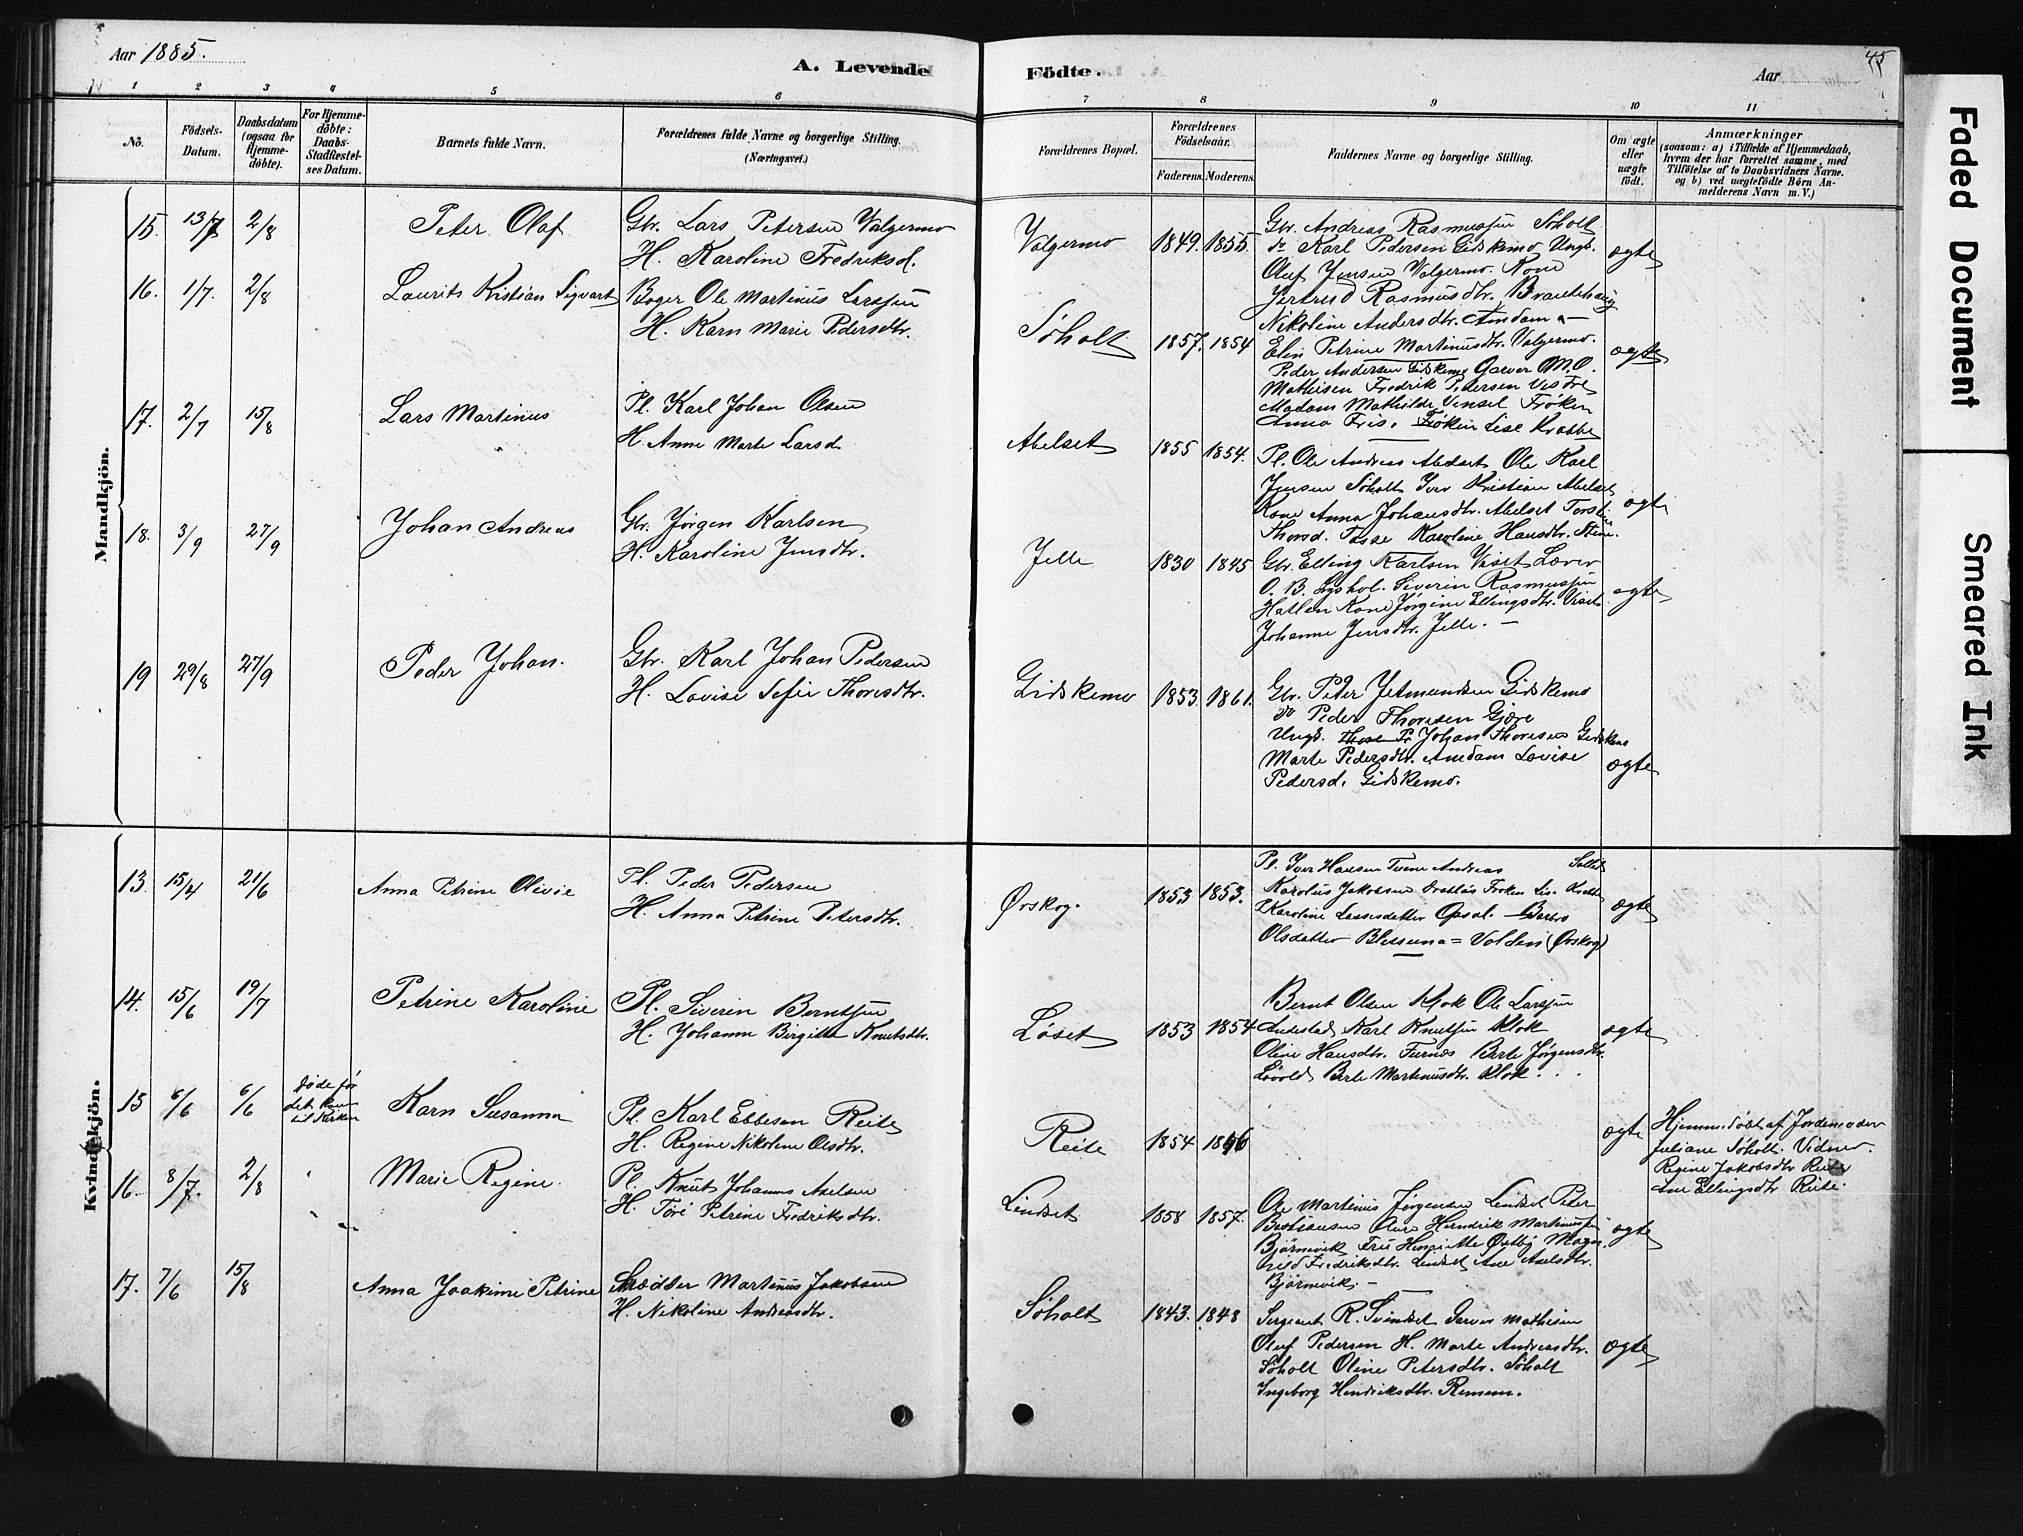 Aar 1885.
A. Levende
Födte.
Aar
45
1 2 3 4 5 6 7 8 9 10 11
No.
Födsels-
Datum.
Daabsdatum
(ogsaa for
Hjemme-
döbte).
For Hjemme-
döbte:
Daabs-
Stadfæstel-
ses Datum.
Barnets fulde Navn.
Forældrenes fulde Navne og borgerlige Stilling.
(Næringsvei.)
Forældrenes Bopæl.
Forældrenes
Födselsaar.
Faderens. Moderens.
Faddernes Navne og borgerlige Stilling.
Om ægte
eller
uægte
födt.
Anmærkninger
(saasom: a) i Tilfælde af Hjemmedaab,
hvem der har forrettet samme, med
Tilföielse af to Daabsvidners Navne.
og b) ved uægtefödte Börn An-
melderens Navn m.V.)
Mandkjön.
15. 13/7 2/8 Peter Olaf
Gbr. Lars Petersen Valgermo
H. Karoline Fredriksd.
Valgermo 1849. 1855.
Gbr. Andreas Rasmussen Söholt
do Karl Pedersen Gidskemo Ungk.
Oluf Jensen Valgermo. Kone
Gertrud Rasmusdtr. Brautehaug
Nikoline Andersdtr. Amdam
Elin Petrine Martinusdtr. Valgermo.
ægte
16. 1/7. 2/8 Laurits Kristian Sigvart
Bager Ole Martinus Larssen
H. Karn Marie Pedersdtr.
Söholt 1857. 1854
Peder Andersen Gidskemo Garver M.O.
Mathisen Fredrik Petersen Vestre
Madam Mathilde Vensel Frøken
Anna Friis. Frøken Lise Krabbe
ægte
17. 2/7 15/8 Lars Martinus
Pl. Karl Johan Olsen
H. Anne Marte Larsd.
Abelset 1855 1854.
Pl. Ole Andreas Abelset Ole Karl
Jensen Söholt Iver Kristian Abelset
Kone Anna Johansdtr. Abelset Torstine
Thorsd. Tosse Karoline Hansdtr. Stene.
ægte
18. 3/9 27/9 Johan Andreas
Gbr. Jörgen Karlsen
H. Karoline Jensdtr.
Jelle 1830 1845
Gbr. Elling Karlsen Viset Lærer
O. B. Lyshol. Severin Rasmussen
Hatlen Kone Jørgine Ellingsdtr. Viset
Johanne Jensdtr. Jelle.
ægte
19 29/8 27/9 Peder Johan.
Gbr. Karl Johan Pedersen
H. Lovise Sofie Thoresdtr.
Gidskemo 1853. 1861.
Gbr. Peter Jetmundsen Gidskemo
do Peder Thoresen Gjære
Ungk. Johan Thoresen Gidskemo
Marte Pedersdtr. Amdam Lovise
Pedersd. Gidskemo.
ægte
Kvindekjön.
13. 15/4 21/6 Anna Petrine Olivie
Pl. Peder Pedersen
H. Anna Petrine Petersdtr.
Ørskog. 1853 1853.
Pl. Iver Hansen Andreas
Karolius Jakobsen Frøken Lise Krabbe
Karoline Lassesdatter Opsal. Barbro
Olsdatter Blessena = Volden (Ørskog)
ægte
14. 15/6 19/7 Petrine Karoline
Pl. Siverin Berntsen
H. Johanne Birgitta Knutsdtr.
Løset 1853 1854
Bernt Olsen Klok Ole Larssen
Andestad Karl Knutsen Klok
Oline Hansdtr. Furnes Berte Jørgensdtr.
Løvold Berte Martinusdtr. Klok.
ægte
15 6/6 6/6 Døde før
det kom
til Kirken
Karn Susanna
Pl. Karl Ebbesen Reite
H. Regine Nikoline Olsdtr.
Reite 1854 1856
ægte
Hjemmedøbt af Jordemoder
Juliane Søholt. Vidner.
Regine Jakobsdtr Reite
Ane Ellingsdtr Reite.
16. 8/7. 2/8 Marie Regine.
Pl. Knut Johannes Axelsen
H. Tore Petrine Fredriksdtr.
Lindset 1858 1857.
Ole Martinus Jørgensen Lindset Peter
Bastiansen Aure Hendrik Martinussen
Bjørnevik Fru Henriette Østby Magn-
hild Fredriksdtr. Lindset Ane Axelsdtr.
Bjørnevik.
ægte
17. 7/6 15/8 Anna Joakime Petrine
Skrædder Martinus Jakobsen
H. Nikoline Andreasdtr.
Søholt 1843. 1848
Sergeant R. Svindset Garver Mathisen
Oluf Pedersen H. Marte Andreasdtr.
Søholt Oline Petersdtr. Søholt
Ingeborg Hendriksdtr. Remem.
ægte
Faded Document
Smeared Ink